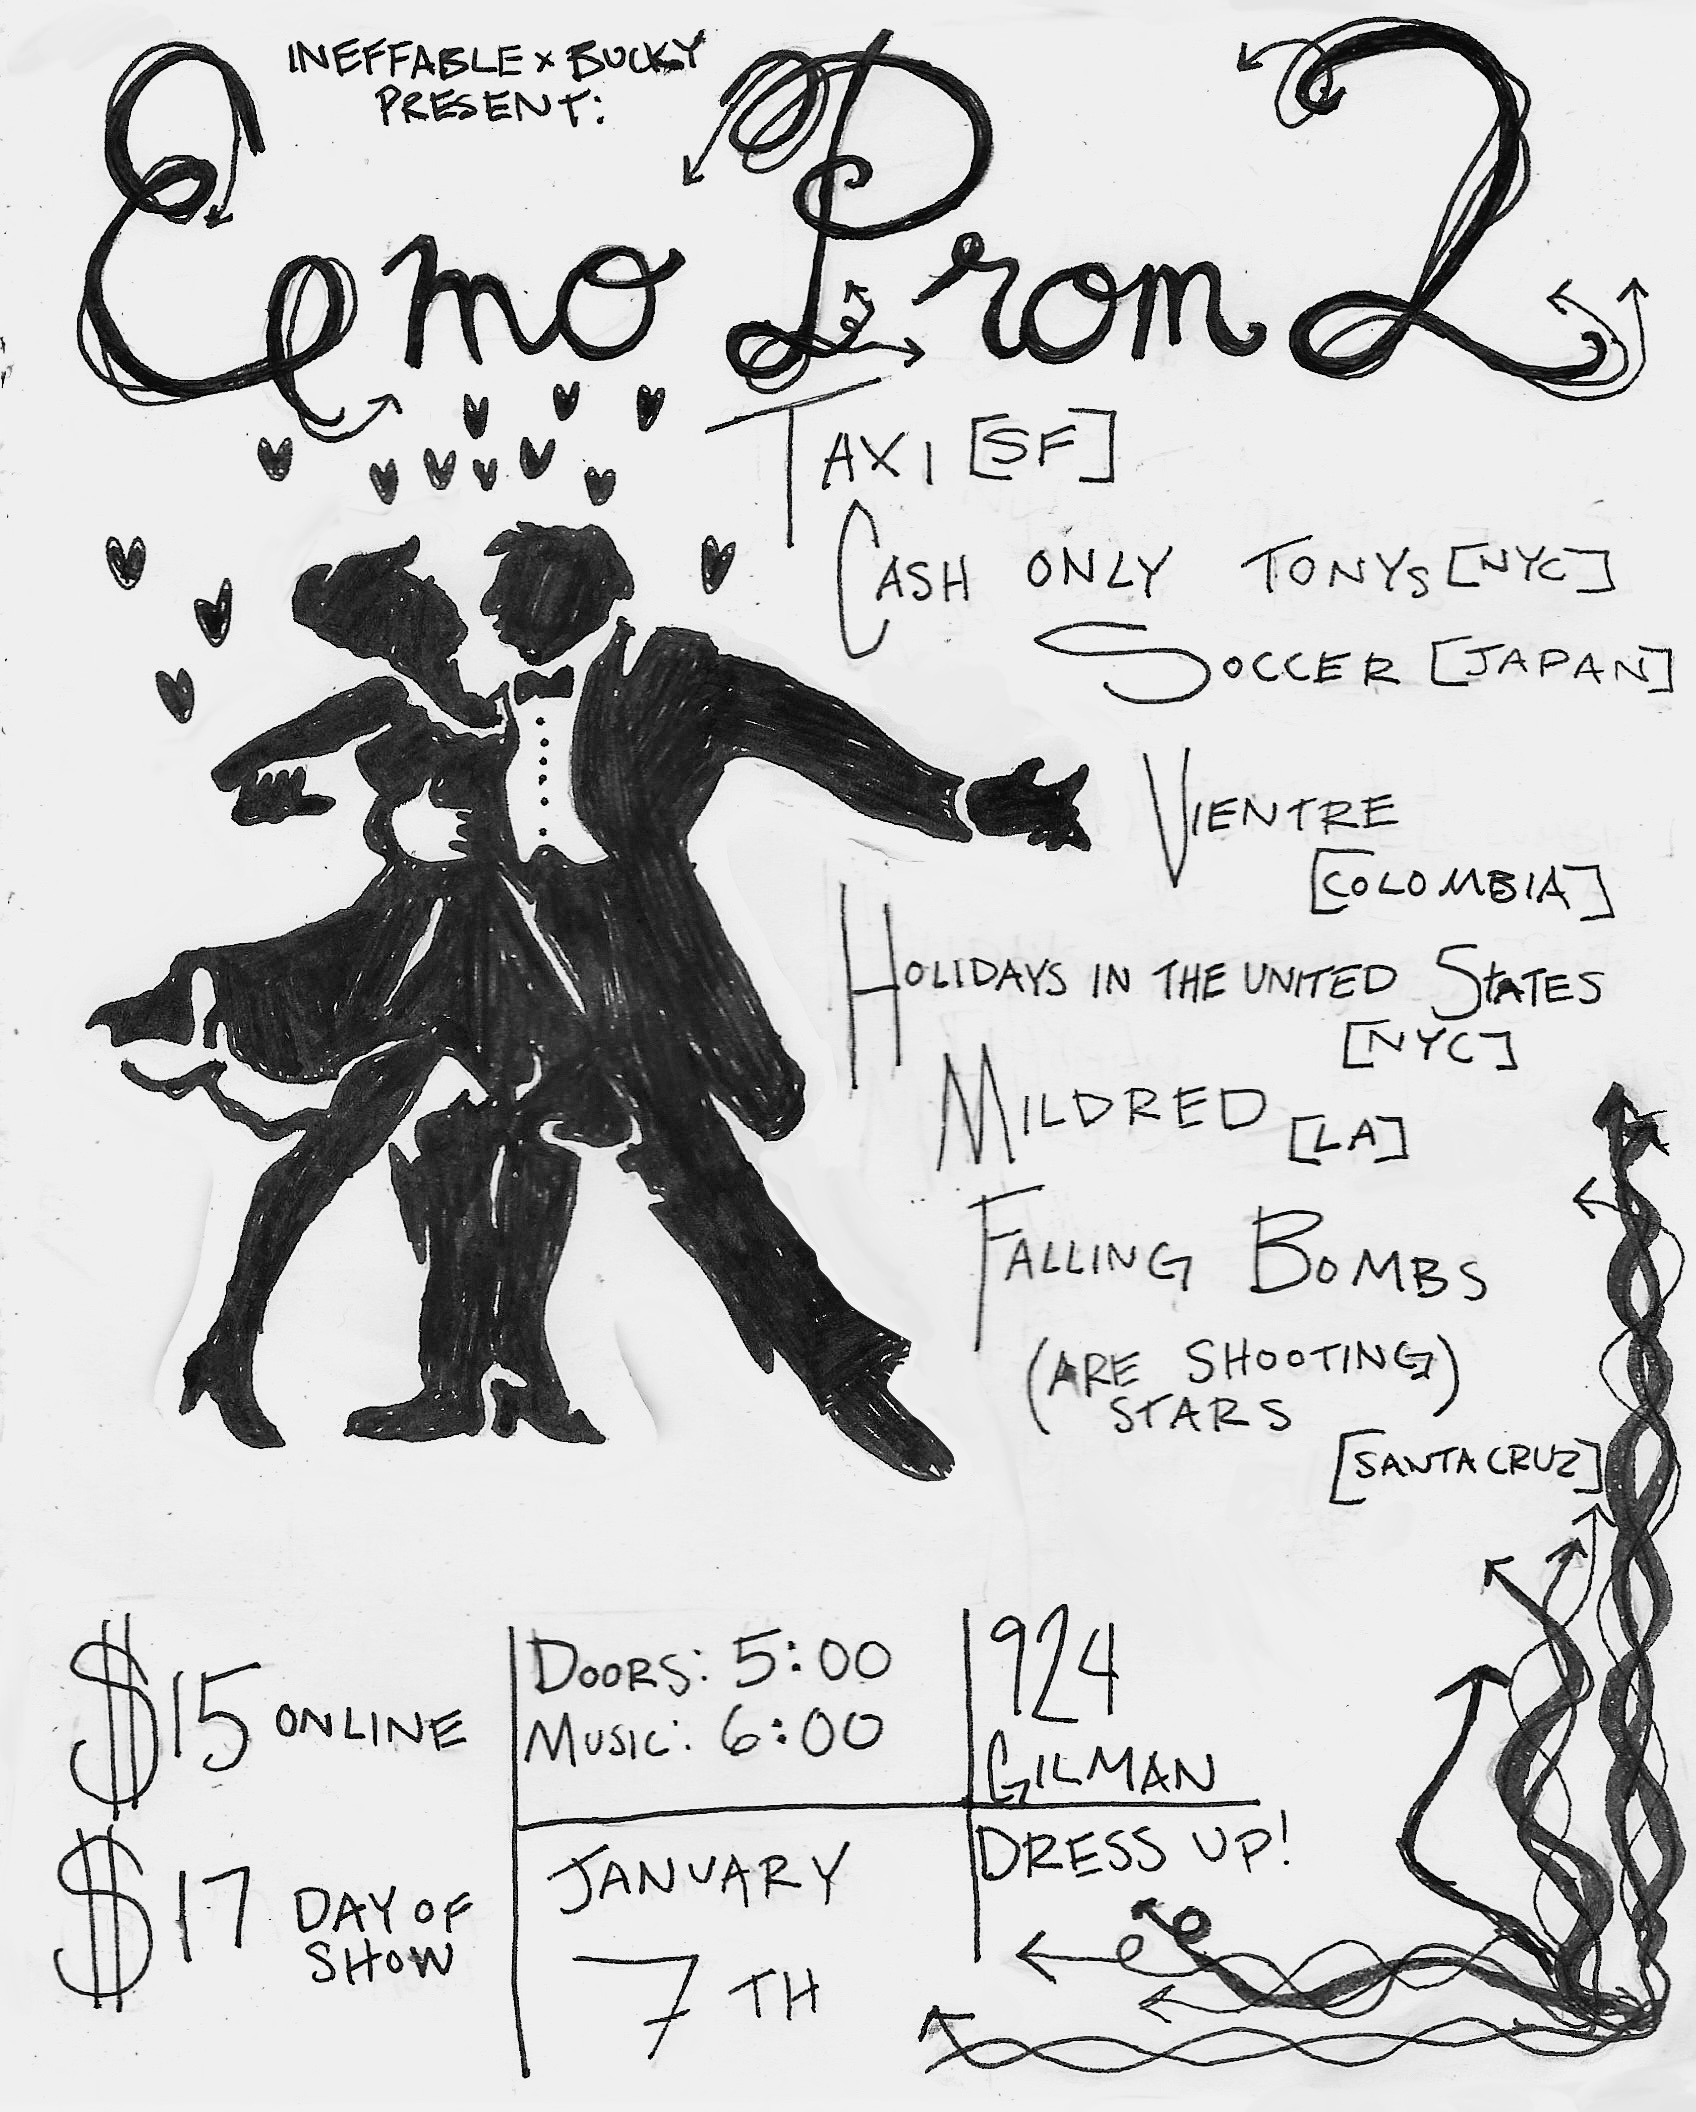 INEFFABLE x BUCKY
PRESENT:
Emo Prom 2
TAXI [SF]
CASH ONLY TONYS [NYC]
SOCCER [JAPAN]
VIENTRE
[COLOMBIA]
HOLIDAYS IN THE UNITED STATES
[NYC]
MILDRED [LA]
FALLING BOMBS
(ARE SHOOTING
STARS)
[SANTA CRUZ]
$15 ONLINE
$17 DAY OF
SHOW
DOORS: 5:00
MUSIC: 6:00
JANUARY
7TH
924
GILMAN
DRESS UP!